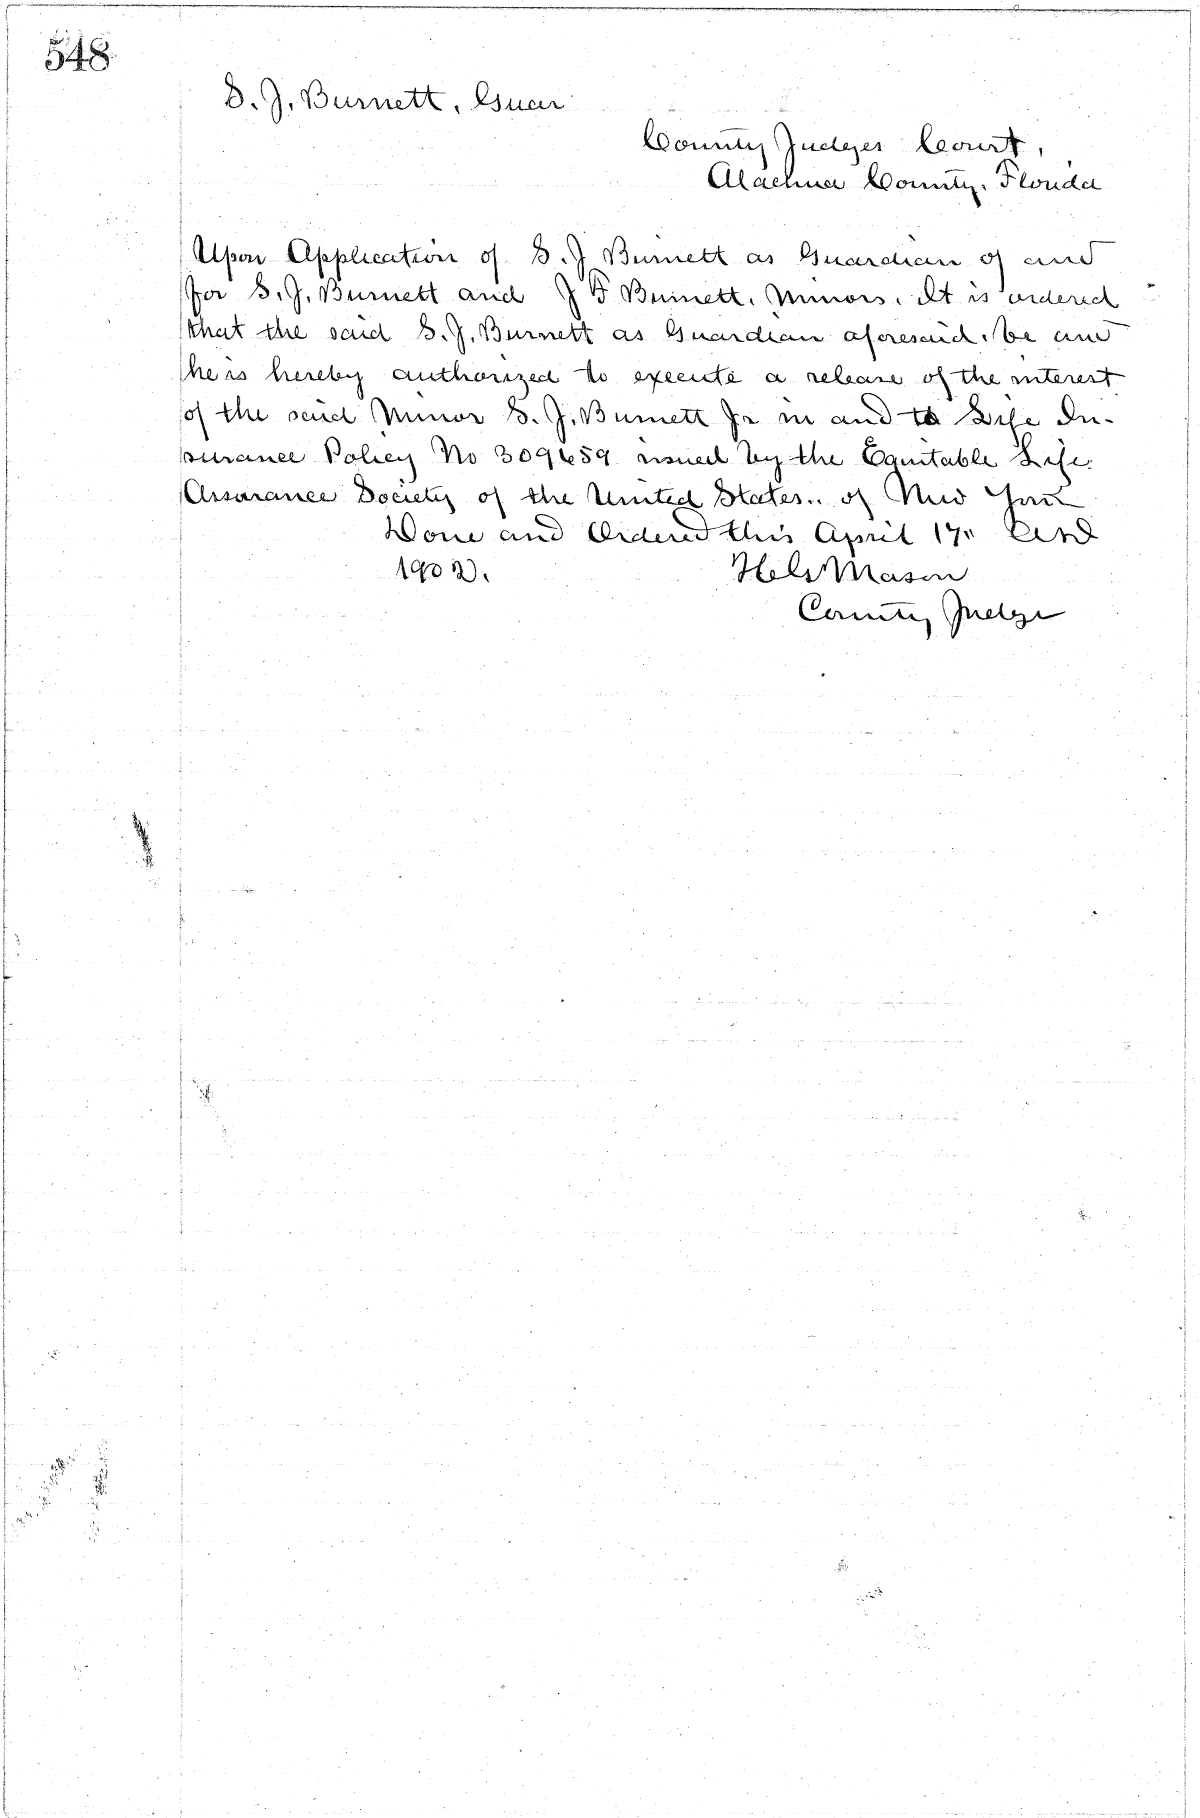 548
S. J. Burnett, Guar
County Judges Court,
Alachua County, Florida
Upon Application of S. J Burnett as Guardian of and
for S. J. Burnett and J F Burnett, Minors. It is ordered
that the said S. J. Burnett as Guardian aforesaid, be and
he is hereby authorized to execute a release of the interest
of the said Minor S. J. Burnett Jr in and to Life In-
surance Policy No 309659 issued by the Equitable Life
Assurance Society of the United States.. of New York
Done and Ordered this April 17" A.D
1902. Mason
County Judge